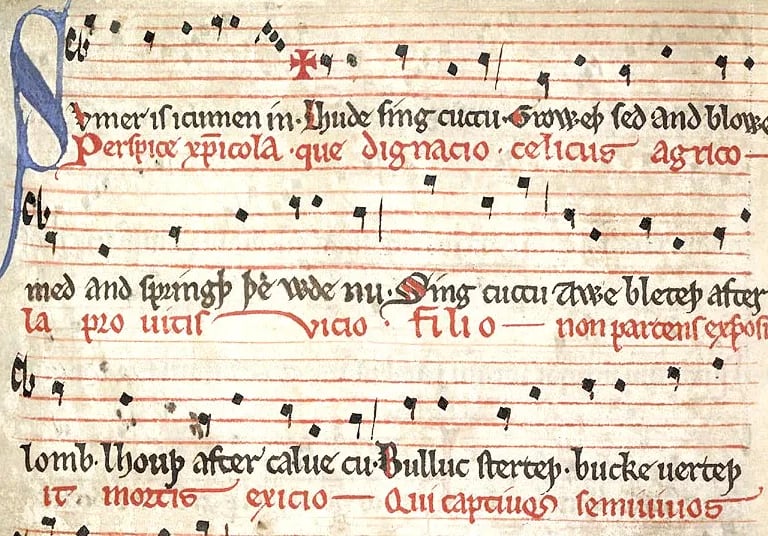 Svmer is icumen in· Lhude sing cuccu· Groweþ sed and blowe
Perspice xp̄icola· que dignacio· celicus agrico—
med and springþ þe wde nu· Sing cuccu Awe bleteþ after
la pro uitis vicio· filio— non parcens exposu
lomb· lhouþ after calue cu· Bulluc sterteþ· bucke uerteþ
it mortis exicio— Qui captiuos semiuiuos